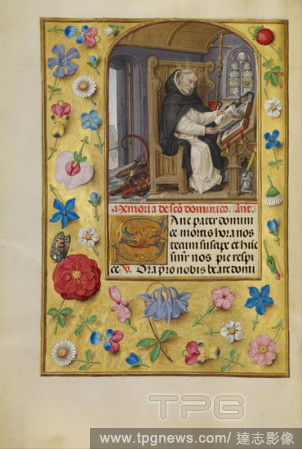 Memoria de sco dominico. Anc.
Anc pater domini
ce mortis hora nos
tecum suscipe et hic
semp nos pie respi
ce. V. Ora pro nobis beate domi
TPG
www.tpgnews.com / 達志影像